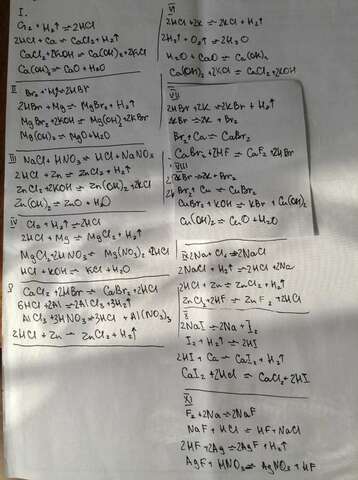 I.
Cl₂ + H₂↑ = 2HCl
2HCl + Ca = CaCl₂ + H₂↑
CaCl₂ + 2KOH = Ca(OH)₂ + 2KCl
Ca(OH)₂ = CaO + H₂O
II
2HBr + Mg = MgBr₂ + H₂↑
MgBr₂ + 2KOH = Mg(OH)₂ + 2KBr
Mg(OH)₂ = MgO + H₂O
III NaCl + HNO₃ = HCl + NaNO₃
2HCl + Zn = ZnCl₂ + H₂↑
ZnCl₂ + 2KOH = Zn(OH)₂ + 2KCl
Zn(OH)₂ = ZnO + H₂O
IV Cl₂ + H₂↑ = 2HCl
2HCl + Mg = MgCl₂ + H₂↑
MgCl₂ + 2HNO₃ = Mg(NO₃)₂ + 2HCl
HCl + KOH = KCl + H₂O
CaCl₂ + 2HBr = CaBr₂ + 2HCl
6HCl + 2Al = 2AlCl₃ + 3H₂↑
AlCl₃ + 3HNO₃ = 3HCl + Al(NO₃)₃
2HCl + Zn = ZnCl₂ + H₂↑
VI
2HCl + 2K = 2KCl + H₂↑
2H₂↑ + O₂↑ = 2H₂O
H₂O + CaO = Ca(OH)₂
Ca(OH)₂ + 2KCl = CaCl₂ + 2KOH
VII
2HBr + 2K = 2KBr + H₂↑
2KBr = 2K + Br₂
Br₂ + Ca = CaBr₂
CaBr₂ + 2HF = CaF₂ + 2HBr
VIII
2KBr = 2K + Br₂
Br₂ + Cu = CuBr₂
CuBr₂ + KOH = KBr + Cu(OH)₂
Cu(OH)₂ = CuO + H₂O
IX 2Na + Cl₂ = 2NaCl
2NaCl + H₂↑ = 2HCl + 2Na
2HCl + Zn = ZnCl₂ + H₂↑
ZnCl₂ + 2HF = ZnF₂ + 2HCl
X
2NaI = 2Na + I₂
I₂ + H₂↑ = 2HI
2HI + Ca = CaI₂ + H₂↑
CaI₂ + 2HCl = CaCl₂ + 2HI
XI
F₂ + 2Na = 2NaF
NaF + HCl = HF + NaCl
2HF + 2Ag = 2AgF + H₂↑
AgF + HNO₃ = AgNO₃ + HF